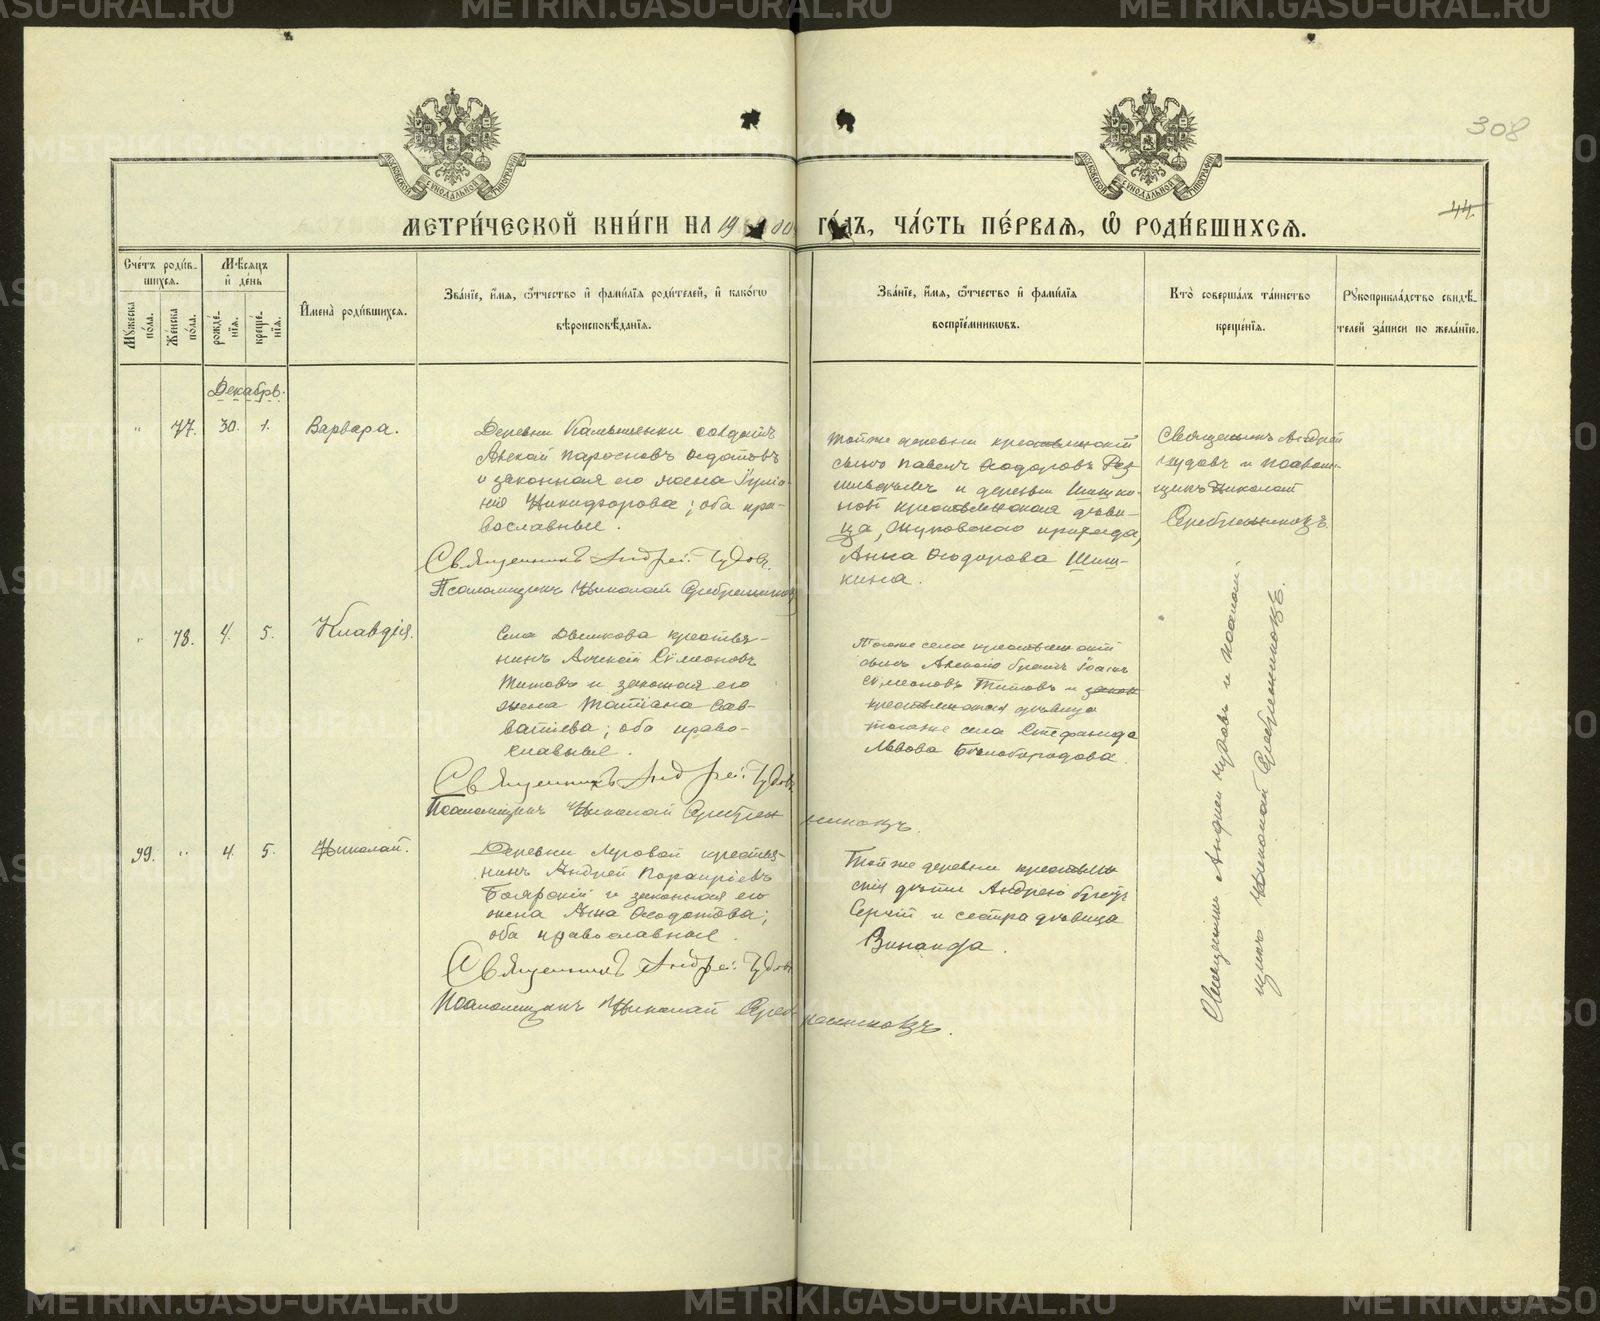 METRIKI.GASO-URAL.RU
308
44.
МЕТРИ́ЧЕСКОЙ КНИ́ГИ НА 19 00 ГО́ДЪ, ЧА́СТЬ ПЕ́РВАЯ, Ѡ РОДИ́ВШИХСЯ.
Сче́тъ роди́в-
шихся.
Мꙋжеска по́ла.
Же́нска по́ла.
Мѣ́сяцъ
и҆ де́нь
рожде́нїя.
креще́нїя.
И҆мена̀ роди́вшихся.
Зва́нїе, и҆́мя, ѻ҆́тчество и҆ фами́лїя роди́телей, и҆ како́гѡ
вѣроисповѣ́данїя.
Зва́нїе, и҆́мя, ѻ҆́тчество и҆ фами́лїя
воспрїе́мникѡвъ.
Кто̀ соверша́лъ та́инство
креще́нїя.
Рꙋкоприкла́дство свидѣ́-
телей за́писи по жела́нїю.
Декабрь.
" 77. 30. 1. Варвара.
Деревни Камышенки солдатъ
Алексѣй
и законная его жена
Никифорова; оба пра-
вославные.
Священникъ Андрей Чудовъ.
Псаломщикъ Николай Серебренниковъ
Той же деревни крестьянскій
сынъ Павелъ Ѳеодоровъ
и деревни Шишки-
ной крестьянская дѣви-
ца, прихода,
Анна Ѳеодорова Шиш-
кина.
Священникъ Андрей
Чудовъ и псалом-
щикъ Николай
Серебренниковъ.
" 78. 4. 5. Клавдія.
Села крестья-
нинъ Алексѣй Сѷмеоновъ
Титовъ и законная его
жена Татіана Сав-
ватіева; оба право-
славные.
Священникъ Андрей Чудовъ
Псаломщикъ Николай Серебренниковъ.
Того же села крестьянскій
сынъ Алексѣю братъ Іоаннъ
Сѷмеоновъ Титовъ и закон
крестьянская дѣвица
того же села Стефанида
Львова Бѣлобородова.
99. " 4. 5. Николай.
Деревни крестья-
нинъ Андрей Порфиріевъ
Боярскій и законная его
жена Анна Ѳеодотова;
оба православные.
Священникъ Андрей Чудовъ
Псаломщикъ Николай Серебренниковъ.
Той же деревни крестьян-
скія дѣти Андрею братъ
Сергій и сестра дѣвица
Зинаида.
Священникъ Андрей Чудовъ и псалом-
щикъ Николай Серебренниковъ.